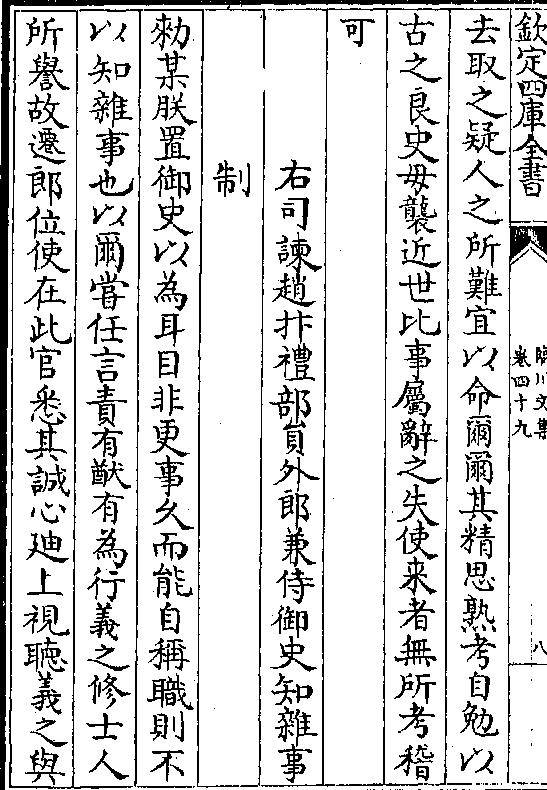 欽定四庫全書
臨川文集
卷四十九
八
去取之疑人之所難宜以命爾爾其精思熟考自勉以
古之良史毋襲近世比事屬辭之失使来者無所考稽
可
右司諫趙抃禮部貟外郎兼侍御史知雜事
制
勑某朕置御史以為耳目非更事久而能自稱職則不
以知雜事也以爾嘗任言責有猷有為行義之修士人
所譽故遷郎位使在此官悉其誠心廸上視聽義之與